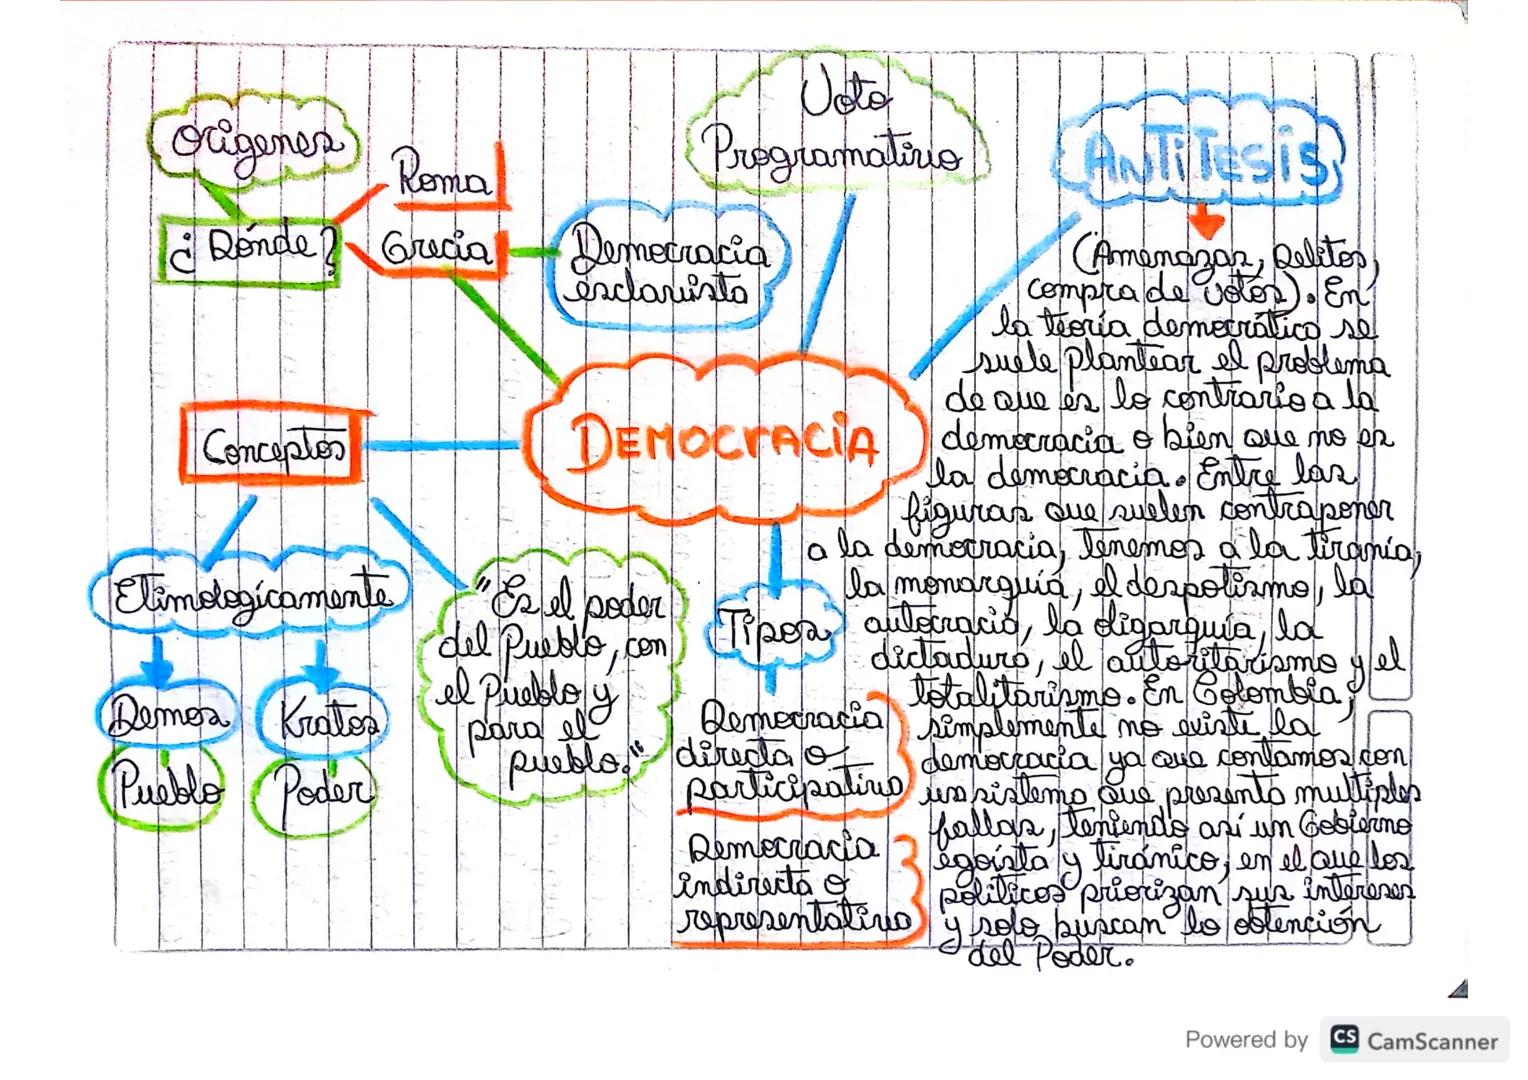 Orígenes
¿Dónde?
Roma
Grecia
Democracia
esclavista
Voto
Programativo
ANTÍTESIS
(Amenazas, Delitos,
compra de votos). En
la teoría democrático se
suele plantear el problema
de que es lo contrario a la
democracia o bien que no es
la democracia. Entre las
figuras que suelen contraponer
a la democracia, tenemos a la tiranía,
la monarquía, el despotismo, la
autocracia, la oligarquía, la
dictadura, el autoritarismo y el
totalitarismo. En Colombia,
simplemente no existe la
democracia ya que contamos con
un sistema que presenta multiples
fallas, teniendo así un Gobierno
egoísta y tiránico, en el que los
políticos priorizan sus intereses
y solo buscan la obtención
del Poder.
DEMOCRACIA
Conceptos
Etimologícamente
Demos
Pueblo
Kratos
Poder
"Es el poder
del Pueblo, con
el Pueblo y
para el
pueblo."
Tipos
Democracia
directa o
participativa
Democracia
indirecta o
representativa
Powered by CS CamScanner